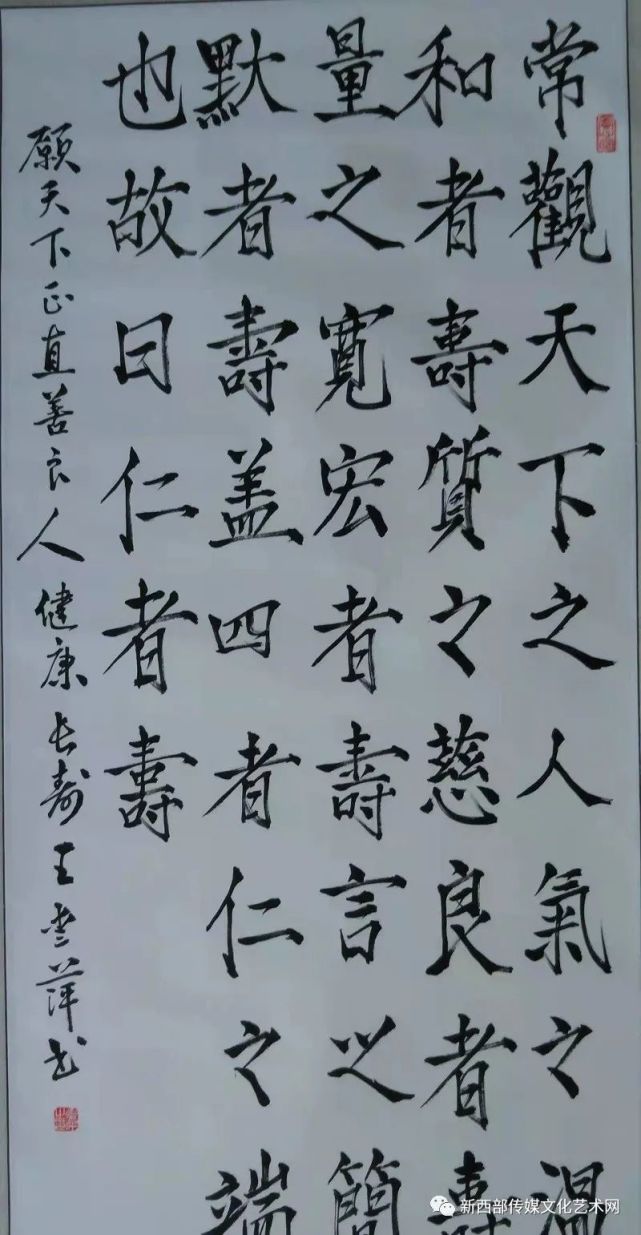 常觀天下之人氣之温
和者壽質之慈良者壽
量之寬宏者壽言之簡
默者壽盖四者仁之端
也故曰仁者壽
願天下正直善良人健康长寿王雲萍书
新西部传媒文化艺术网